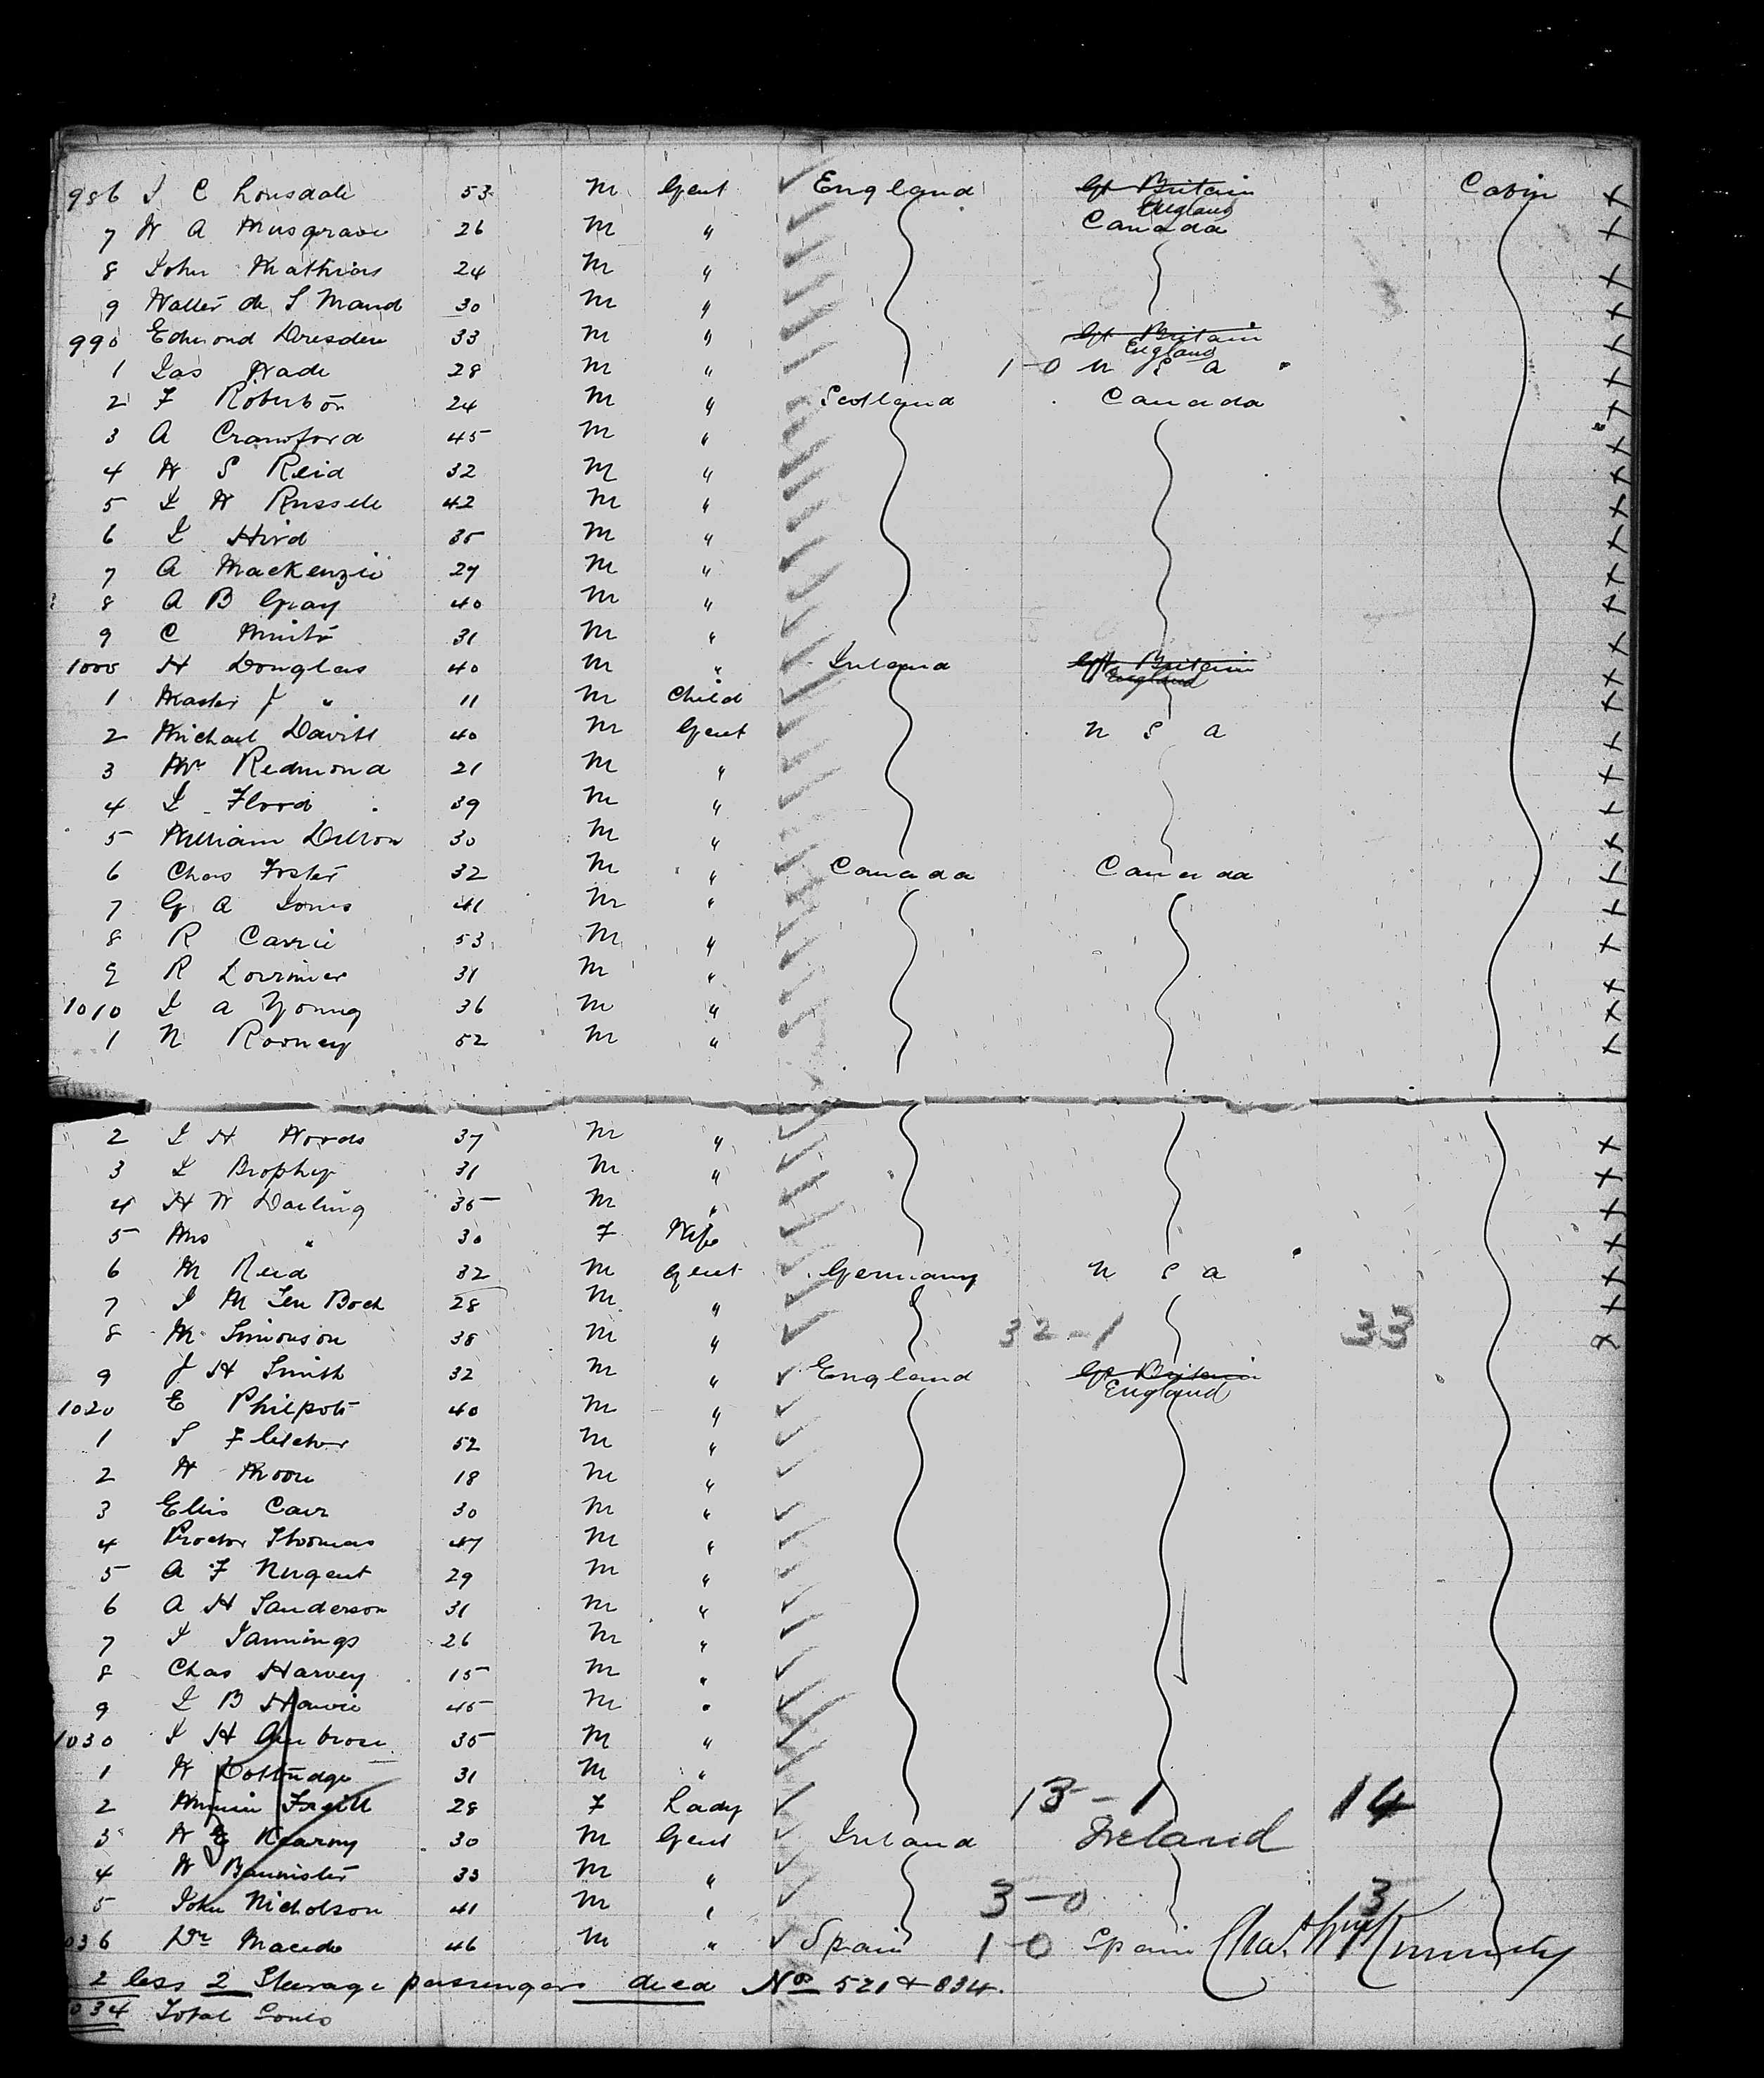 986 J C Lonsdale 53 M Gent England Gt Britain Cabin
England
7 W A Musgrave 26 M " Canada
8 John Mathias 24 M "
9 Walter de S Maud 30 M "
990 Edmond Dresden 33 M " Gt Britain
England
1 Jas Wade 28 M " 1-0 U S A
2 F Robertson 24 M " Scotland Canada
3 A Crawford 45 M "
4 W S Reid 32 M "
5 J W Russell 42 M "
6 J Hird 35 M "
7 A MacKenzie 27 M "
8 A B Gray 40 M "
9 C 31 M "
1000 H Douglas 40 M " Ireland Gt Britain
England
1 Master J " 11 M Child
2 Michael Davitt 40 M Gent U S A
3 Mr Redmond 21 M "
4 J Flood 39 M "
5 William Dillon 30 M "
6 Chas Foster 32 M " Canada Canada
7 G A Jones 41 M "
8 R Carrie 53 M "
9 R Lorrimer 31 M "
1010 J A Young 36 M "
1 N Rooney 52 M "
2 J H Woods 37 M "
3 J Brophy 31 M "
4 H W Darling 35 M "
5 Mrs " 30 F Wife
6 M Reid 32 M Gent Germany U S A
7 J M Ten Boch 28 M "
8 M Simonson 38 M " 32-1 33
9 J H Smith 32 M " England Gt Britain
England
1020 E Philpott 40 M "
1 S Fletcher 52 M "
2 H Moore 18 M "
3 Ellis Carr 30 M "
4 Proctor Thomas 47 M "
5 A F Nugent 29 M "
6 A H Sanderson 31 M "
7 J Jannings 26 M "
8 Chas Harvey 15 M "
9 J B Howie 45 M "
1030 J H Ambrose 35 M "
1 W Dottridge 31 M "
2 Minnie 28 F Lady 13-1 14
3 W Kearny 30 M Gent Ireland Ireland
4 W Bannister 33 M "
5 John Nicholson 41 M " 3-0 3
036 Dr Macedo 46 M " Spain 1-0 Spain
2 less 2 Steerage passengers died Nos 521 & 834.
034 Total Souls